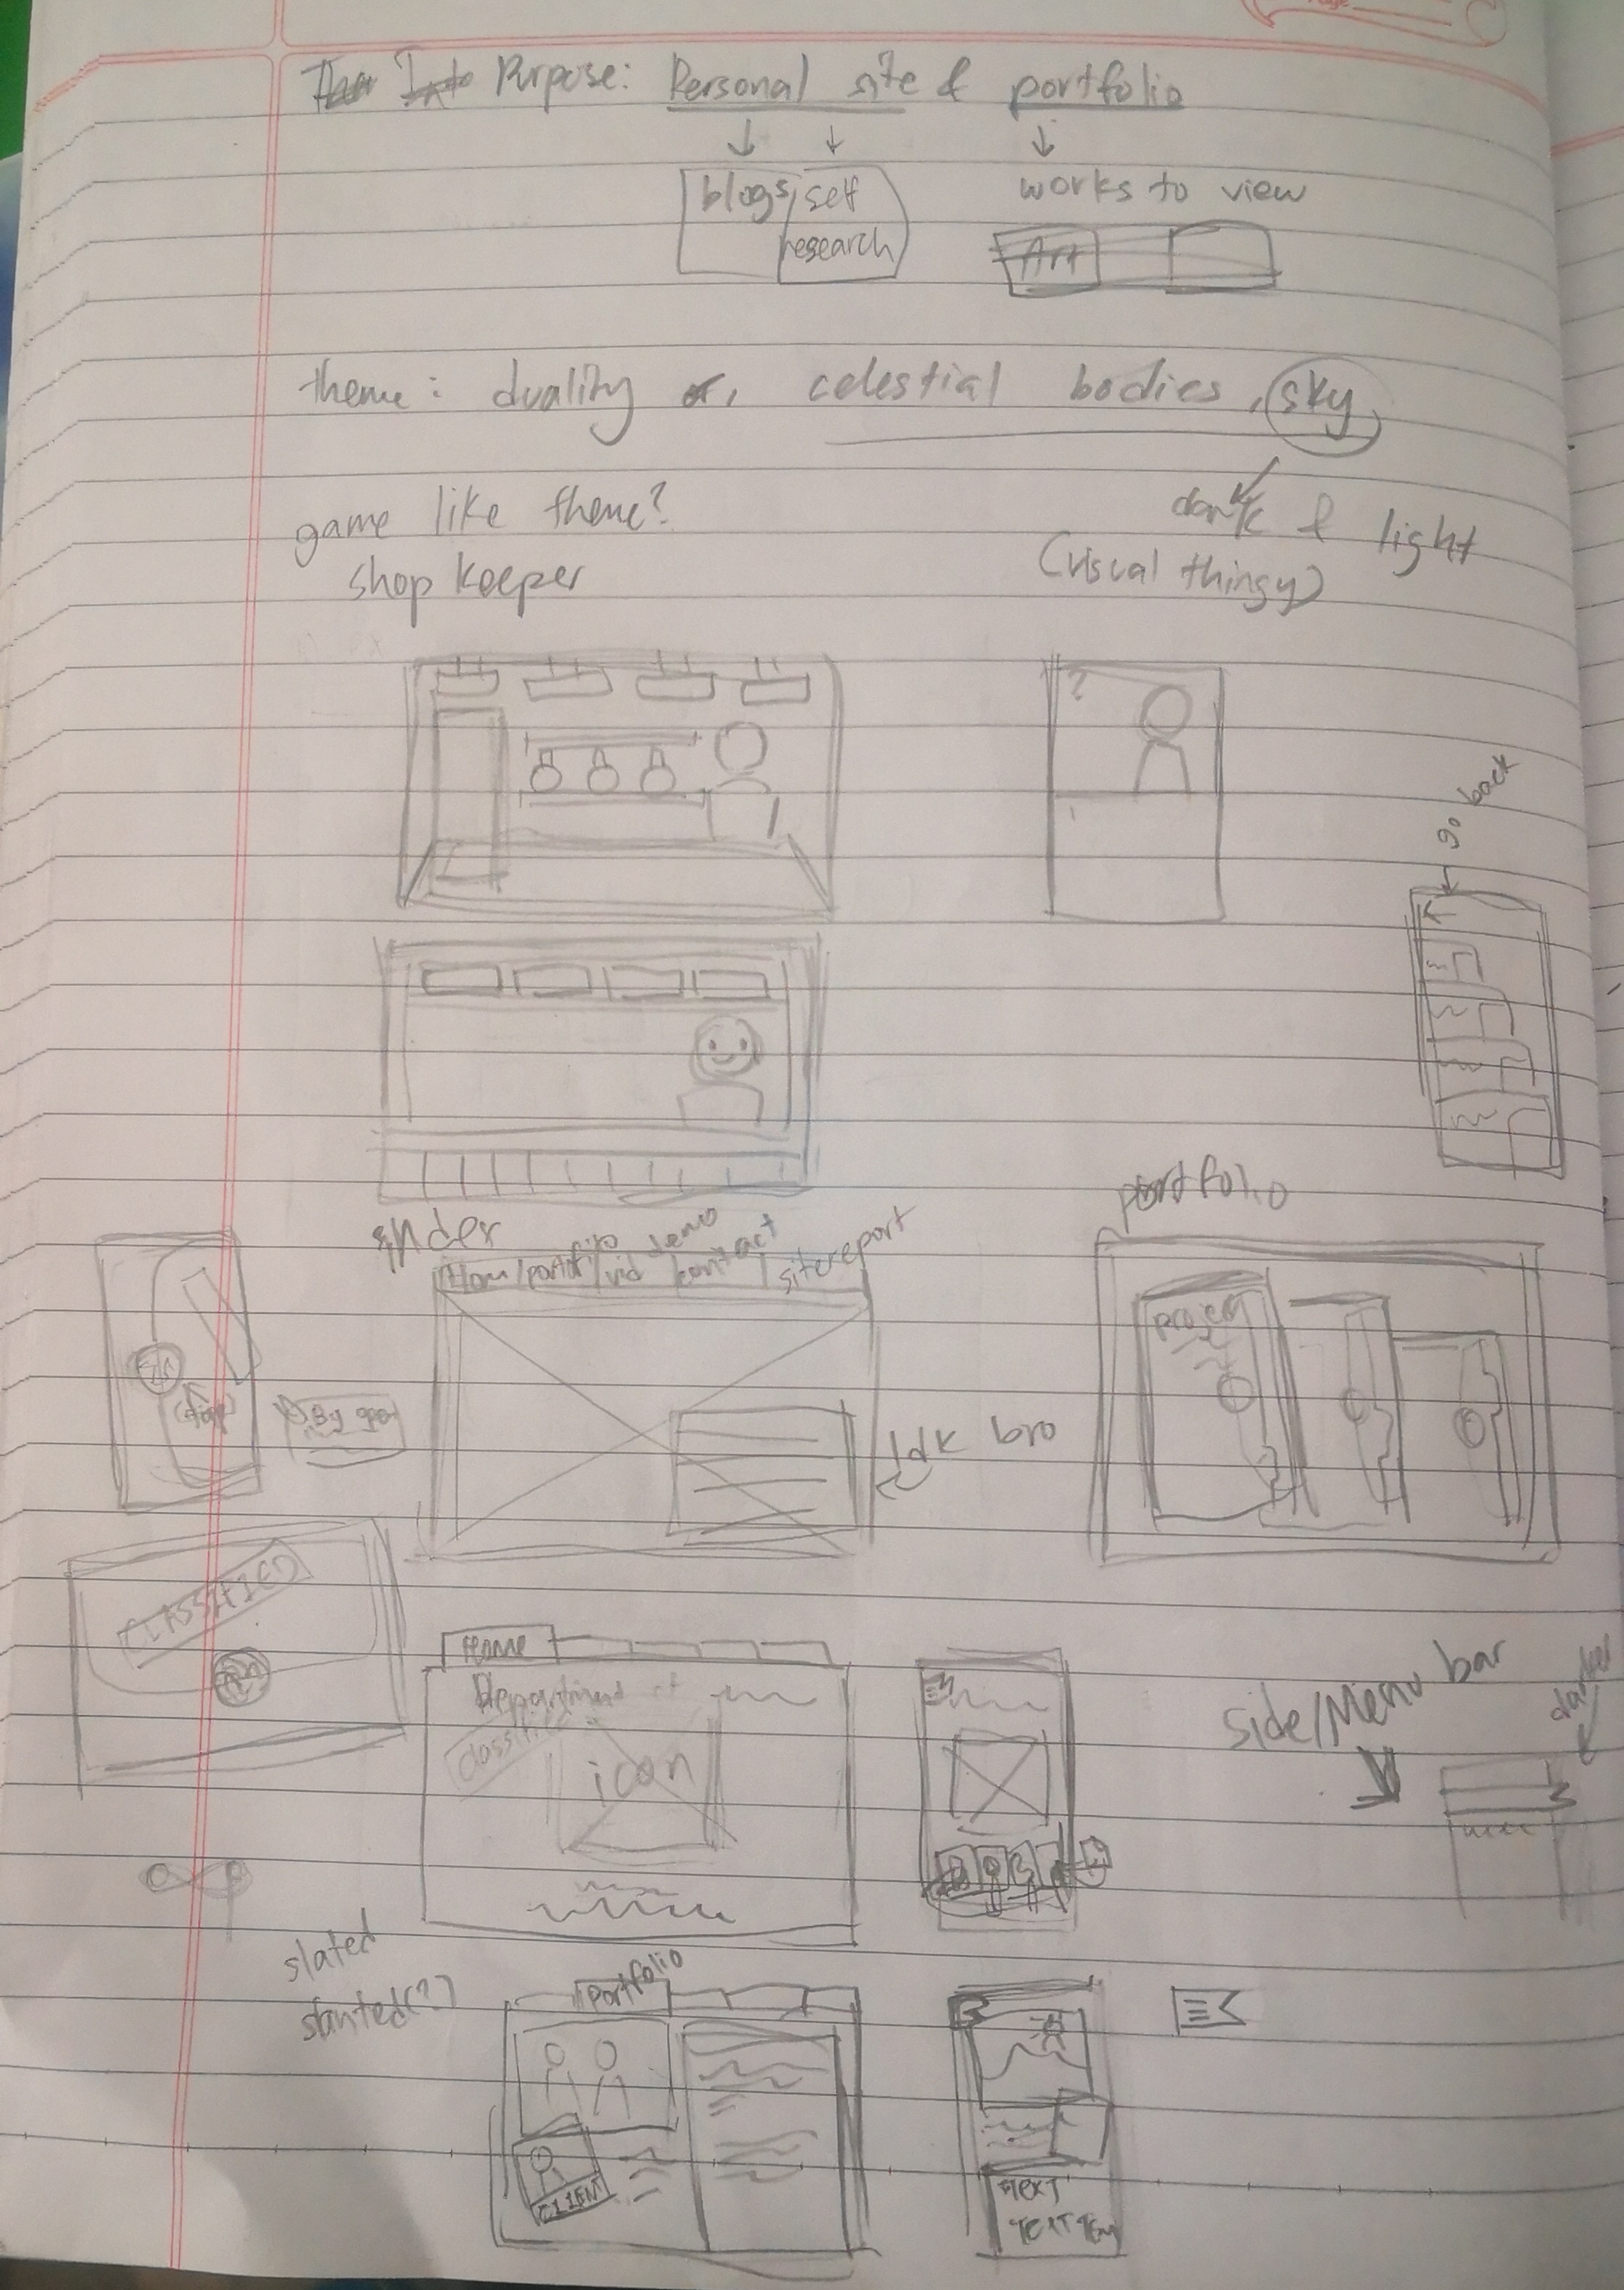 Purpose: Personal site & portfolio
blogs/ self research
works to view
Art
theme: duality or, celestial bodies, sky
game like theme?
shop keeper
dark & light
(visual thingy)
?
go back
portfolio
Home/portfolio/vid demo contact / sitereport
project
Idk bro
CLASSIFIED
Home
Department of
classified
icon
side/Menu bar
slated
slanted(?)
portfolio
CLIENT
TEXT
TEXT